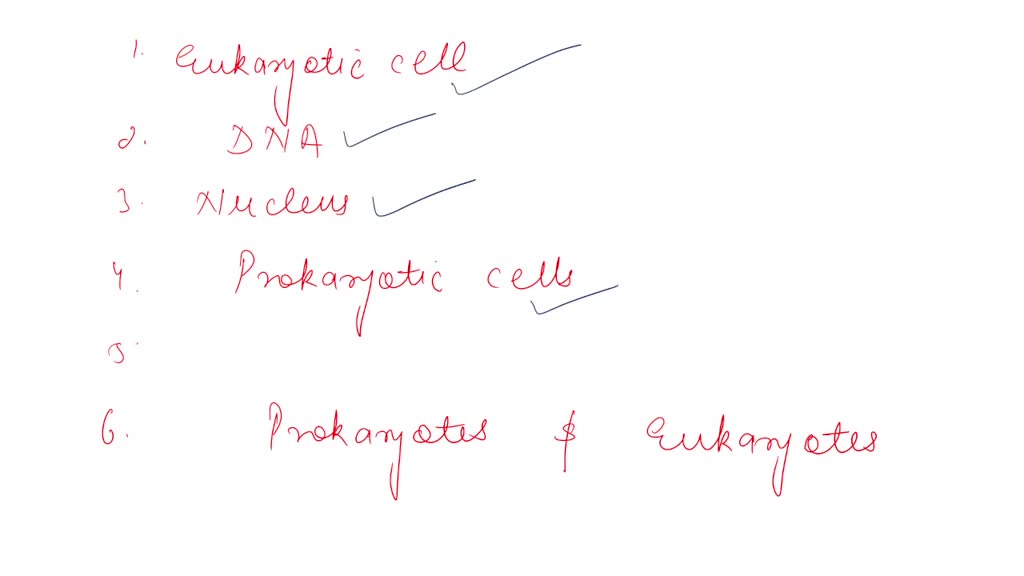 1. Eukaryotic cell
2. DNA
3. Nucleus
4. Prokaryotic cells
5.
6. Prokaryotes & Eukaryotes